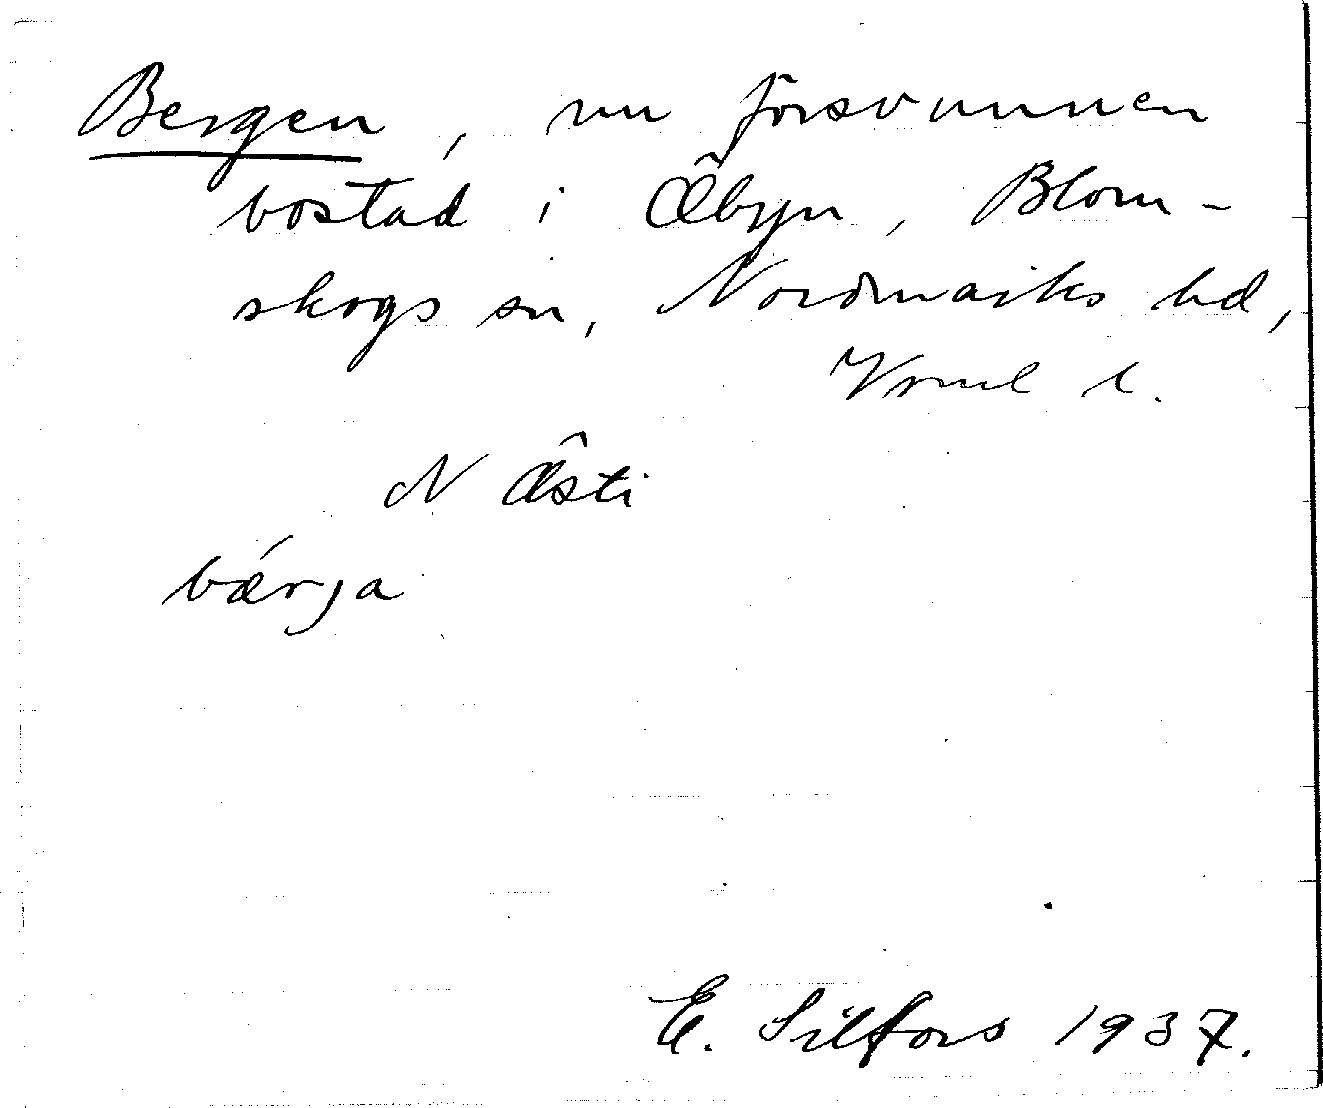 Bergen, nu försvunnen
bostad i Öbyn, Blom-
skogs sn, Nordmarks hd,
Vrml l.
N Östi
bǽrja
E. Silfors 1937.